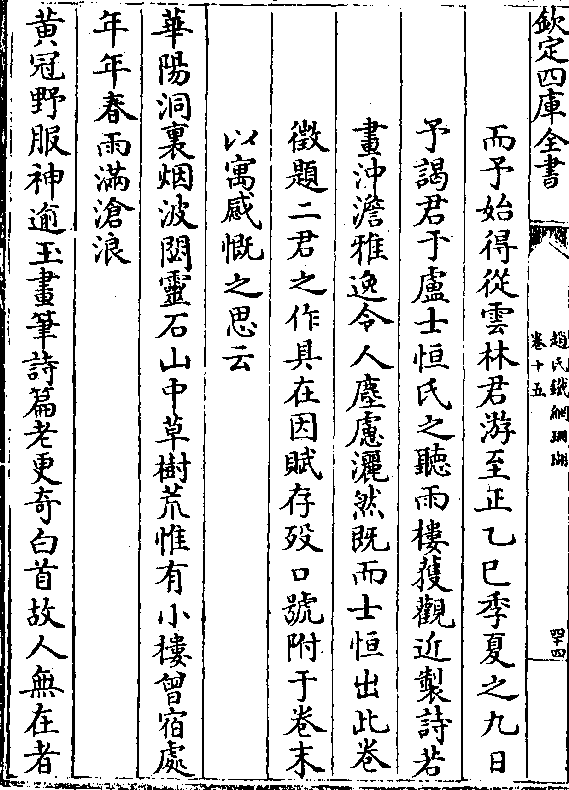 欽定四庫全書
趙氏鐵網珊瑚
卷十五
四十四
而予始得從雲林君游至正乙巳季夏之九日
予謁君于盧士恒氏之聽雨樓獲觀近製詩若
畫沖澹雅逸令人塵慮灑然既而士恒出此卷
徵題二君之作具在因賦存歿口號附于卷末
以寓感慨之思云
華陽洞裏烟波闊靈石山中草樹荒惟有小樓曾宿處
年年春雨滿滄浪
黄冠野服神逾王畫筆詩篇老更奇白首故人無在者